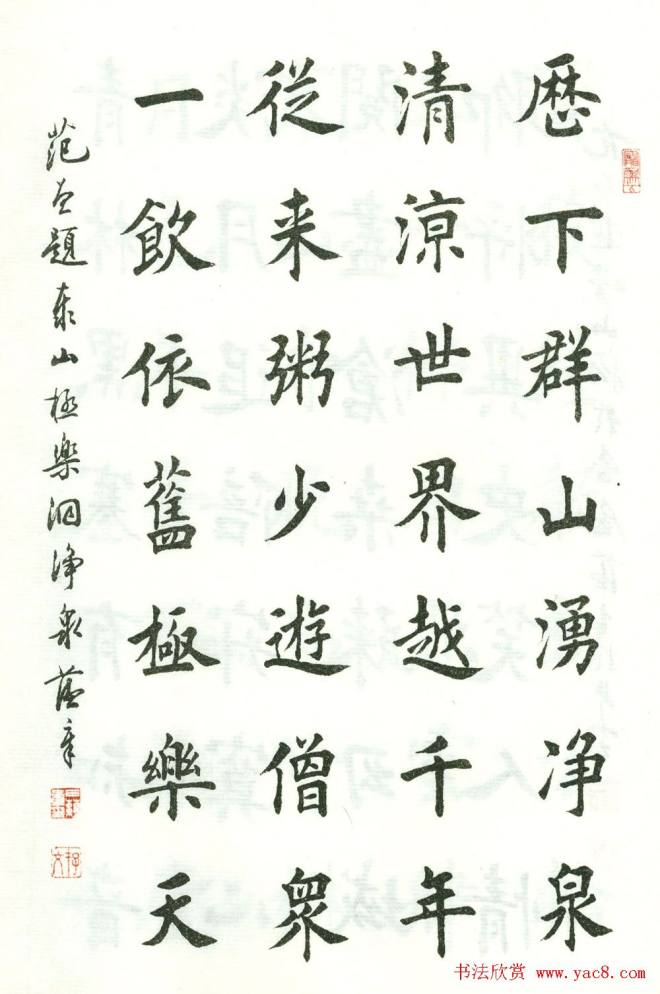 歷下群山湧净泉
清涼世界越千年
從来粥少遊僧衆
一飲依舊極樂天
范曾題泰山極樂洞净泉蘆章
书法欣赏 www.yac8.com